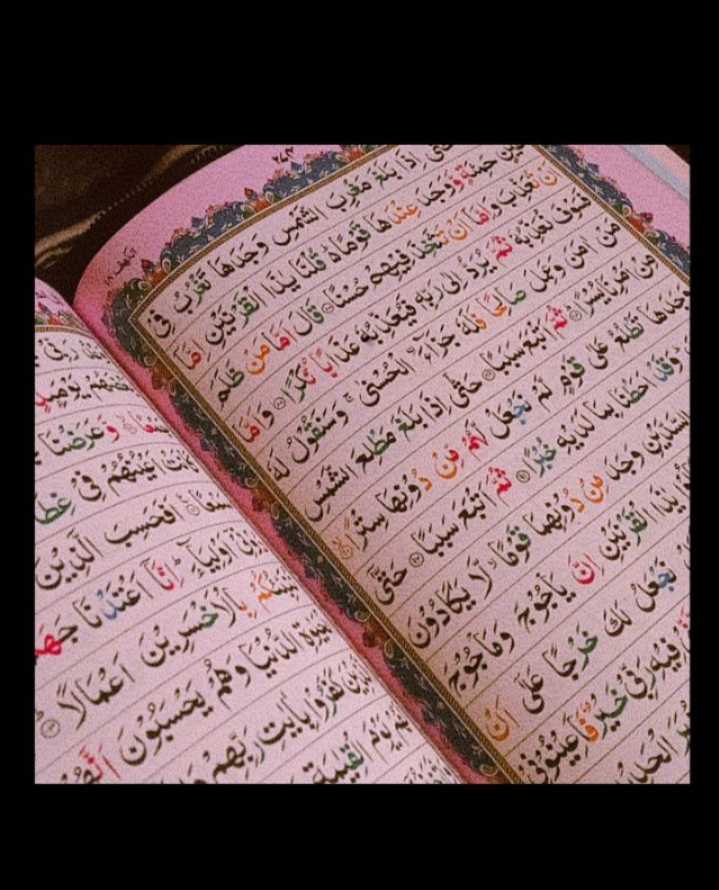 ٢٤٣
الكهف ١٨
حَتّٰۤى اِذَا بَلَغَ مَغْرِبَ الشَّمْسِ وَجَدَهَا تَغْرُبُ فِىْ
عَيْنٍ حَمِئَةٍ وَّوَجَدَ عِنْدَهَا قَوْمًا ؕ قُلْنَا يٰذَا الْقَرْنَيْنِ اِمَّاۤ
اَنْ تُعَذِّبَ وَاِمَّاۤ اَنْ تَتَّخِذَ فِيْهِمْ حُسْنًا ﴿٨٦﴾ قَالَ اَمَّا مَنْ ظَلَمَ
فَسَوْفَ نُعَذِّبُهٗ ثُمَّ يُرَدُّ اِلٰى رَبِّهٖ فَيُعَذِّبُهٗ عَذَابًا نُّكْرًا ﴿٨٧﴾ وَاَمَّا
مَنْ اٰمَنَ وَعَمِلَ صَالِحًا فَلَهٗ جَزَآءَ اۨلْحُسْنٰى ۚ وَسَنَقُوْلُ لَهٗ
مِنْ اَمْرِنَا يُسْرًا ﴿٨٨﴾ ثُمَّ اَتْبَعَ سَبَبًا ﴿٨٩﴾ حَتّٰۤى اِذَا بَلَغَ مَطْلِعَ الشَّمْسِ
وَجَدَهَا تَطْلُعُ عَلٰى قَوْمٍ لَّمْ نَجْعَلْ لَّهُمْ مِّنْ دُوْنِهَا سِتْرًا ﴿٩٠﴾
وَقَدْ اَحَطْنَا بِمَا لَدَيْهِ خُبْرًا ﴿٩١﴾ ثُمَّ اَتْبَعَ سَبَبًا ﴿٩٢﴾ حَتّٰۤى
السَّدَّيْنِ وَجَدَ مِنْ دُوْنِهِمَا قَوْمًا ۙ لَّا يَكَادُوْنَ
يٰذَا الْقَرْنَيْنِ اِنَّ يَاْجُوْجَ وَمَاْجُوْجَ
نَجْعَلُ لَكَ خَرْجًا عَلٰۤى اَنْ
فِيْهِ رَبِّىْ خَيْرٌ فَاَعِيْنُوْنِىْ
زُبَرَ الْحَدِيْدِ
يَوْمَئِذٍ
جَمْعًا ﴿٩٩﴾ وَّعَرَضْنَا
كَانَتْ اَعْيُنُهُمْ فِىْ غِطَآءٍ
اَفَحَسِبَ الَّذِيْنَ
اَوْلِيَآءَ ؕ اِنَّاۤ اَعْتَدْنَا جَهَنَّمَ
نُنَبِّئُكُمْ بِالْاَخْسَرِيْنَ اَعْمَالًا ﴿١٠٣﴾
الْحَيٰوةِ الدُّنْيَا وَهُمْ يَحْسَبُوْنَ اَنَّهُمْ
الَّذِيْنَ كَفَرُوْا بِاٰيٰتِ رَبِّهِمْ
لَهُمْ يَوْمَ الْقِيٰمَةِ